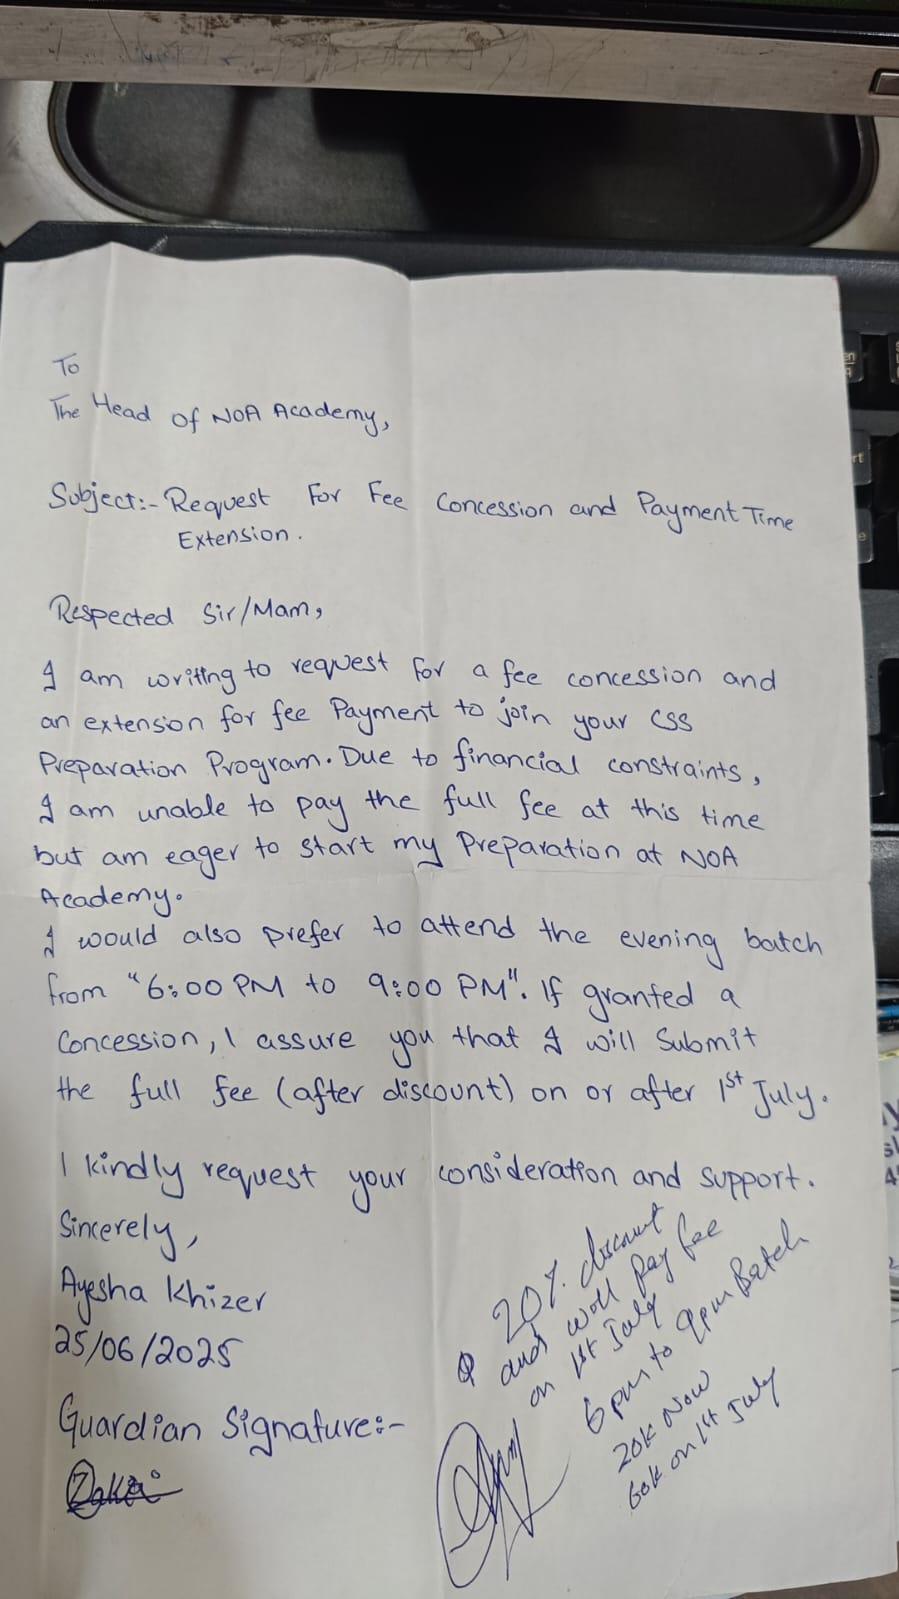 To
The Head of NOA Academy,
Subject:- Request For Fee Concession and Payment Time
Extension.
Respected Sir/Mam,
I am writing to request for a fee concession and
an extension for fee Payment to join your CSS
Preparation Program. Due to financial constraints,
I am unable to pay the full fee at this time
but am eager to start my Preparation at NOA
Academy.
I would also prefer to attend the evening batch
from "6:00 PM to 9:00 PM". If granted a
Concession, I assure you that I will Submit
the full fee (after discount) on or after 1st July.
I kindly request your consideration and support.
Sincerely,
Ayesha Khizer
25/06/2025
Guardian Signature:-
Zakai
20% discount
and will pay fee
on 1st July
6pm to 9pm Batch
20k Now
60k on 1st July